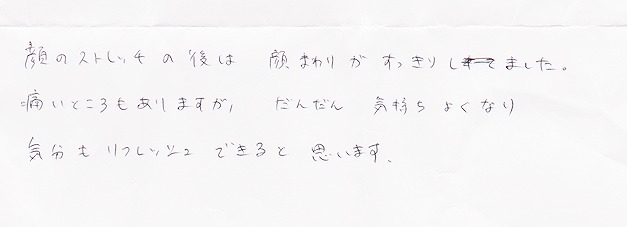 顔のストレッチの後は 顔まわりが すっきりしました。
痛いところもありますが, だんだん 気持ちよくなり
気分もリフレッシュできると思います.